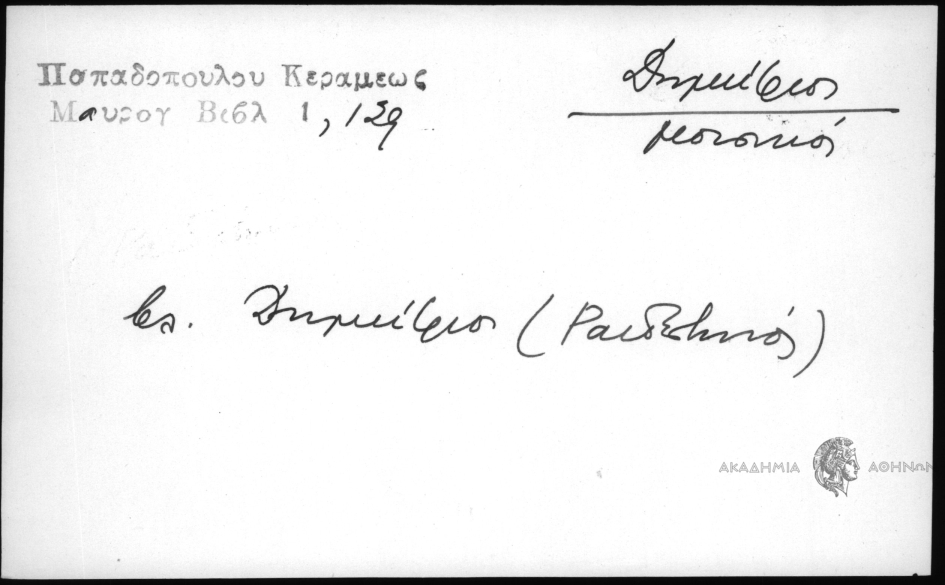 Παπαδοπουλου Κεραμεως
Μαυρογ Βιβλ 1, 129
Δημήτριος
μουσικός
βλ. Δημήτριος (Ραιδεστηνός)
ΑΚΑΔΗΜΙΑ ΑΘΗΝΩΝ